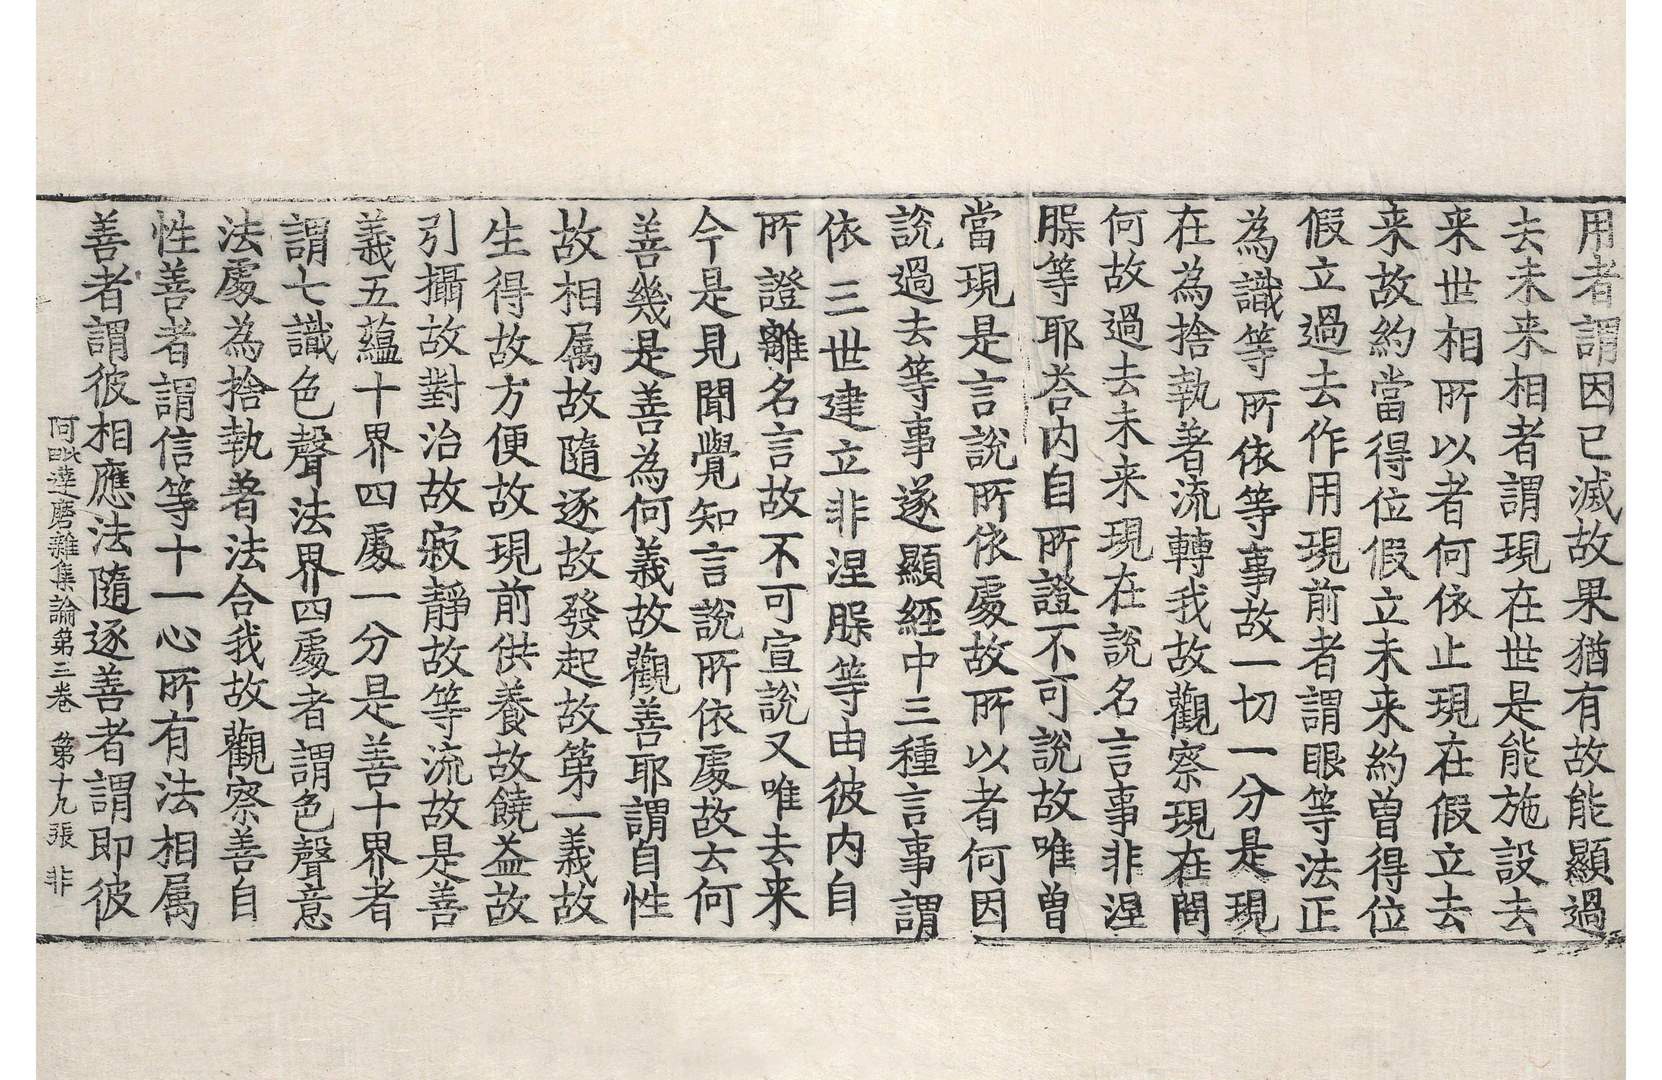 用者謂因已滅故果猶有故能顯過
去未来相者謂現在世是能施設去
来世相所以者何依止現在假立去
来故約當得位假立未来約曽得位
假立過去作用現前者謂眼等法正
為識等所依等事故一切一分是現
在為捨執著流轉我故觀察現在問
何故過去未来現在說名言事非涅
脲等耶荅内自所證不可說故唯曽
當現是言說所依處故所以者何因
說過去等事遂顯經中三種言事謂
依三世建立非涅脲等由彼内自
所證離名言故不可宣說又唯去来
今是見聞覺知言說所依處故去何
善幾是善為何義故觀善耶謂自性
故相属故隨逐故發起故第一義故
生得故方便故現前供養故饒益故
引攝故對治故寂靜故等流故是善
義五蘊十界四處一分是善十界者
謂七識色聲法界四處者謂色聲意
法處為捨執著法合我故觀察善自
性善者謂信等十一心所有法相属
善者謂彼相應法隨逐善者謂即彼
阿毗達磨雜集論第三卷 第十九張 非